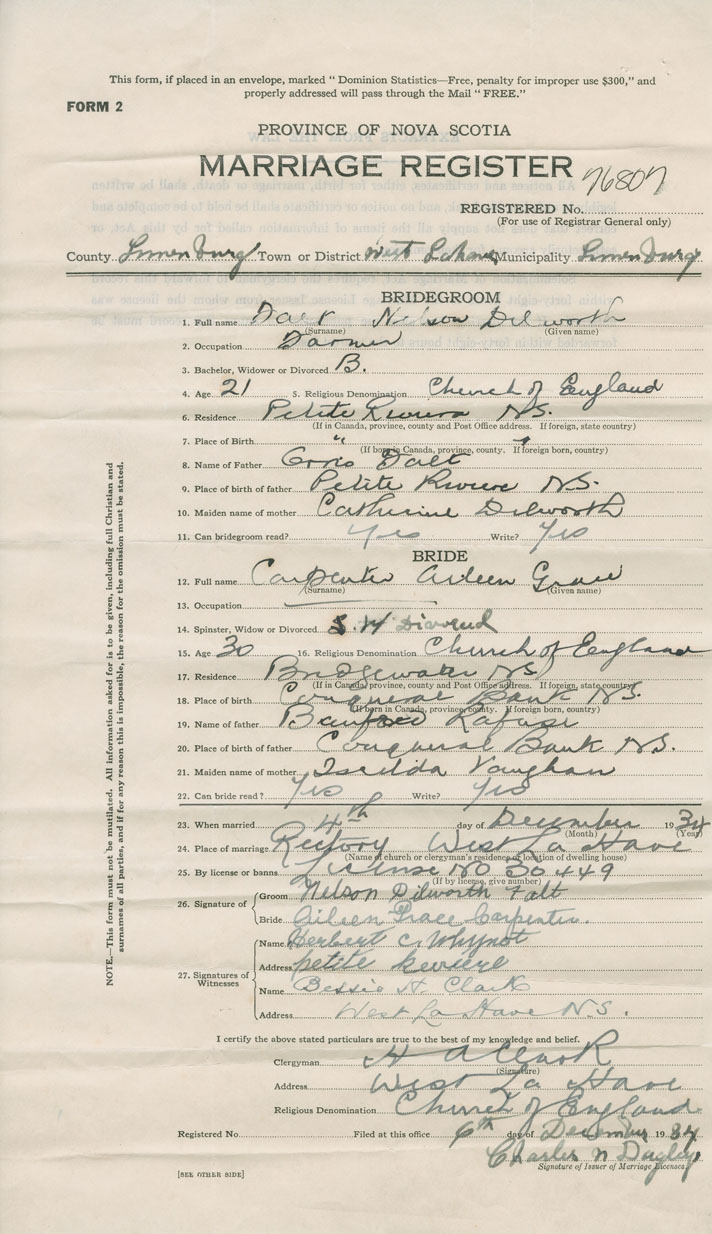 This form, if placed in an envelope, marked " Dominion Statistics—Free, penalty for improper use $300," and
properly addressed will pass through the Mail " FREE."
FORM 2
PROVINCE OF NOVA SCOTIA
MARRIAGE REGISTER
76807
REGISTERED No.
(For use of Registrar General only)
County Lunenburg Town or District West Lahave Municipality Lunenburg
BRIDEGROOM
1. Full name Falt Nelson Dilworth
(Surname) (Given name)
2. Occupation Farmer
3. Bachelor, Widower or Divorced B.
4. Age 21 5. Religious Denomination Church of England
6. Residence Petite Riviere N.S.
(If in Canada, province, county and Post Office address. If foreign, state country)
7. Place of Birth " "
(If born in Canada, province, county. If foreign born, country)
8. Name of Father Falt
9. Place of birth of father Petite Riviere N.S.
10. Maiden name of mother Catherine Dilworth
11. Can bridegroom read? Yes Write? Yes
BRIDE
12. Full name Carpenter Aileen Grace
(Surname) (Given name)
13. Occupation
14. Spinster, Widow or Divorced Divorced
15. Age 30 16. Religious Denomination Church of England
17. Residence Bridgewater NS
(If in Canada, province, county and Post Office address. If foreign, state country)
18. Place of birth Conqueral Bank N.S.
(If born in Canada, province, county. If foreign born, country)
19. Name of father Lafuse
20. Place of birth of father Conqueral Bank N.S.
21. Maiden name of mother Vaughan
22. Can bride read? Yes Write? Yes
23. When married 4th day of December 1934
(Month) (Year)
24. Place of marriage Rectory West La Have
(Name of church or clergyman's residence or location of dwelling house)
25. By license or banns License No 30449
(If by license, give number)
26. Signature of Groom Nelson Dilworth Falt
Bride Aileen Grace Carpenter.
27. Signatures of Witnesses
Name Herbert C. Whynot
Address petite Reviere
Name Bessie H. Clark
Address West La Have N.S.
I certify the above stated particulars are true to the best of my knowledge and belief.
Clergyman H A Clark
(Signature)
Address West La Have
Religious Denomination Church of England
Registered No. Filed at this office 6th day of December 1934
Charles N Dagley
Signature of Issuer of Marriage Licenses.
[SEE OTHER SIDE]
NOTE.—This form must not be mutilated. All information asked for is to be given, including full Christian and
surnames of all parties, and if for any reason this is impossible, the reason for the omission must be stated.